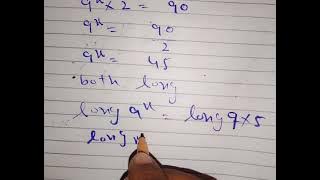 9ˣ × 2 = 90
9ˣ = 90
2
9ˣ = 45
both long
long 9ˣ = long 9×5
long